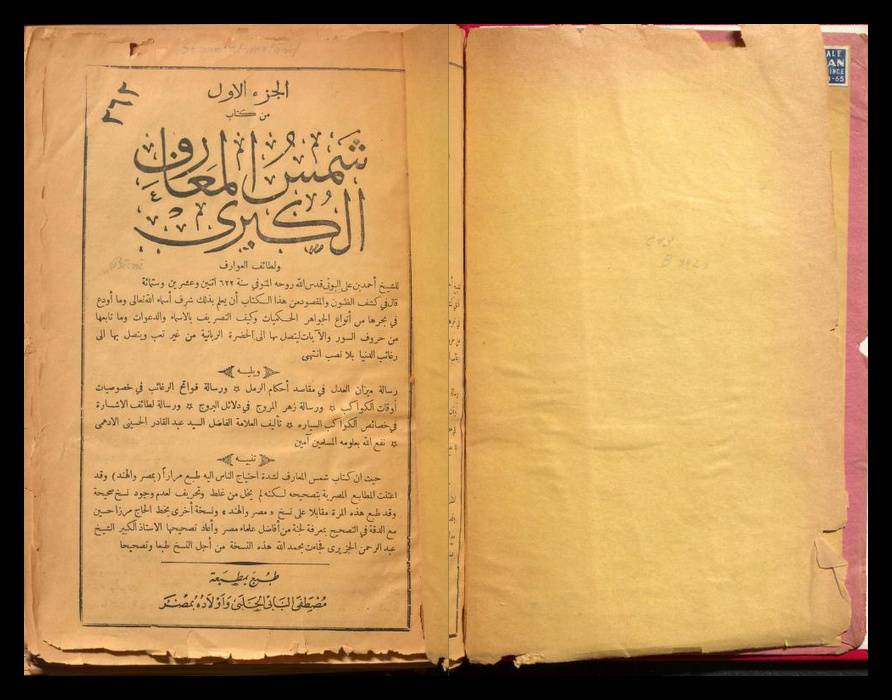 الجزء الاول
من كتاب
شمس المعارف
الكبرى
ولطائف العوارف
للشيخ أحمد بن على البونى قدس الله روحه المتوفي سنة ٦٢٢ اثنين وعشرين وستمائة
قال في كشف الظنون والمقصود من هذا الكتاب أن يعلم بذلك شرف أسماء الله تعالى وما أودع
في بحرها من أنواع الجواهر الحكميات وكيف التصريف بالاسماء والدعوات وما تابعها
من حروف السور والآيات ليتصل بها الى الحضرة الربانية من غير تعب ويتصل بها الى
رغائب الدنيا بلا نصب انتهى
ويليه
رسالة ميزان العدل في مقاصد أحكام الرمل * ورسالة فواتح الرغائب في خصوصيات
أوقات الكواكب * ورسالة زهر المروج في دلائل البروج * ورسالة لطائف الاشارة
في خصائص الكواكب السياره * تأليف العلامة الفاضل السيد عبد القادر الحسينى الادهمى
* نفع الله بعلومه المسلمين آمين
تنبيه
حيث ان كتاب شمس المعارف لشدة احتياج الناس اليه طبع مراراً (بمصر والهند) وقد
اعتنت المطابع المصرية بتصحيحه لكنه لم يخل من غلط وتحريف لعدم وجود نسخ صحيحة
وقد طبع هذه المرة مقابلا على نسخ « مصر والهند » ونسخة أخرى بخط الحاج مرزا حسين
مع الدقة في التصحيح بمعرفة لجنة من أفاضل علماء مصر وأعاد تصحيحها الاستاذ الكبير الشيخ
عبد الرحمن الجزيرى فجاءت بحمد الله هذه النسخة من أجل النسخ طبعا وتصحيحا
طبع بمطبعة
مصطفى البابى الحلبى وأولاده بمصر
٣٦٢